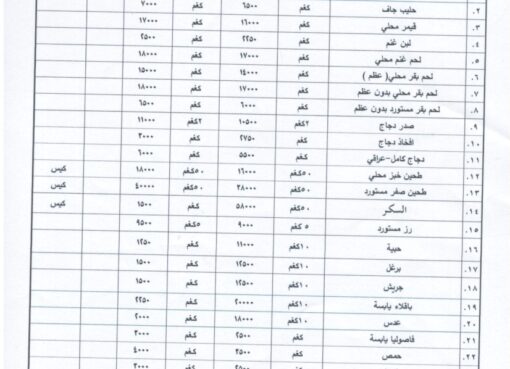 ٢. حليب جاف كغم ٦٥٠٠ كغم ٧٠٠٠
٣. قيمر محلي كغم ١٦٠٠٠ كغم ١٧٠٠٠
٤. لبن غنم كغم ٢٢٥٠ كغم ٢٥٠٠
٥. لحم غنم محلي كغم ١٧٠٠٠ كغم ١٨٠٠٠
٦. لحم بقر محلي( عظم ) كغم ١٤٠٠٠ كغم ١٥٠٠٠
٧. لحم بقر محلي بدون عظم كغم ١٧٠٠٠ كغم ١٨٠٠٠
٨. لحم بقر مستورد بدون عظم كغم ٦٠٠٠ كغم ٦٥٠٠
٩. صدر دجاج ٢كغم ١٠٥٠٠ ٢كغم ١١٠٠٠
١٠. افخاذ دجاج كغم ٢٧٥٠ كغم ٣٠٠٠
١١. دجاج كامل-عراقي كغم ٥٥٠٠ كغم ٦٠٠٠
١٢. طحين خبز محلي ٥٠كغم ١٦٠٠٠ ٥٠كغم ١٨٠٠٠ كيس
١٣. طحين صفر مستورد ٥٠كغم ٣٨٠٠٠ ٥٠كغم ٤٠٠٠٠ كيس
١٤. السكر ٥٠كغم ٥٨٠٠٠ كغم ١٥٠٠ كيس
١٥. رز مستورد ٥ كغم ٩٠٠٠ ٥كغم ٩٥٠٠
١٦. حبية ١٠كغم ١١٠٠٠ كغم ١٢٥٠
١٧. برغل ١٠كغم ١٢٥٠٠ كغم ١٥٠٠
١٨. جريش ١٠كغم ١٢٥٠٠ كغم ١٥٠٠
١٩. باقلاء يابسة ١٠كغم ٢٠٠٠٠ كغم ٢٢٥٠
٢٠. عدس ١٠كغم ١٨٠٠٠ كغم ٢٠٠٠
٢١. فاصوليا يابسة كغم ٢٥٠٠ كغم ٣٠٠٠
٢٢. حمص كغم ٣٥٠٠ كغم ٤٠٠٠
كغم ٢٥٠٠ كغم ٣٠٠٠